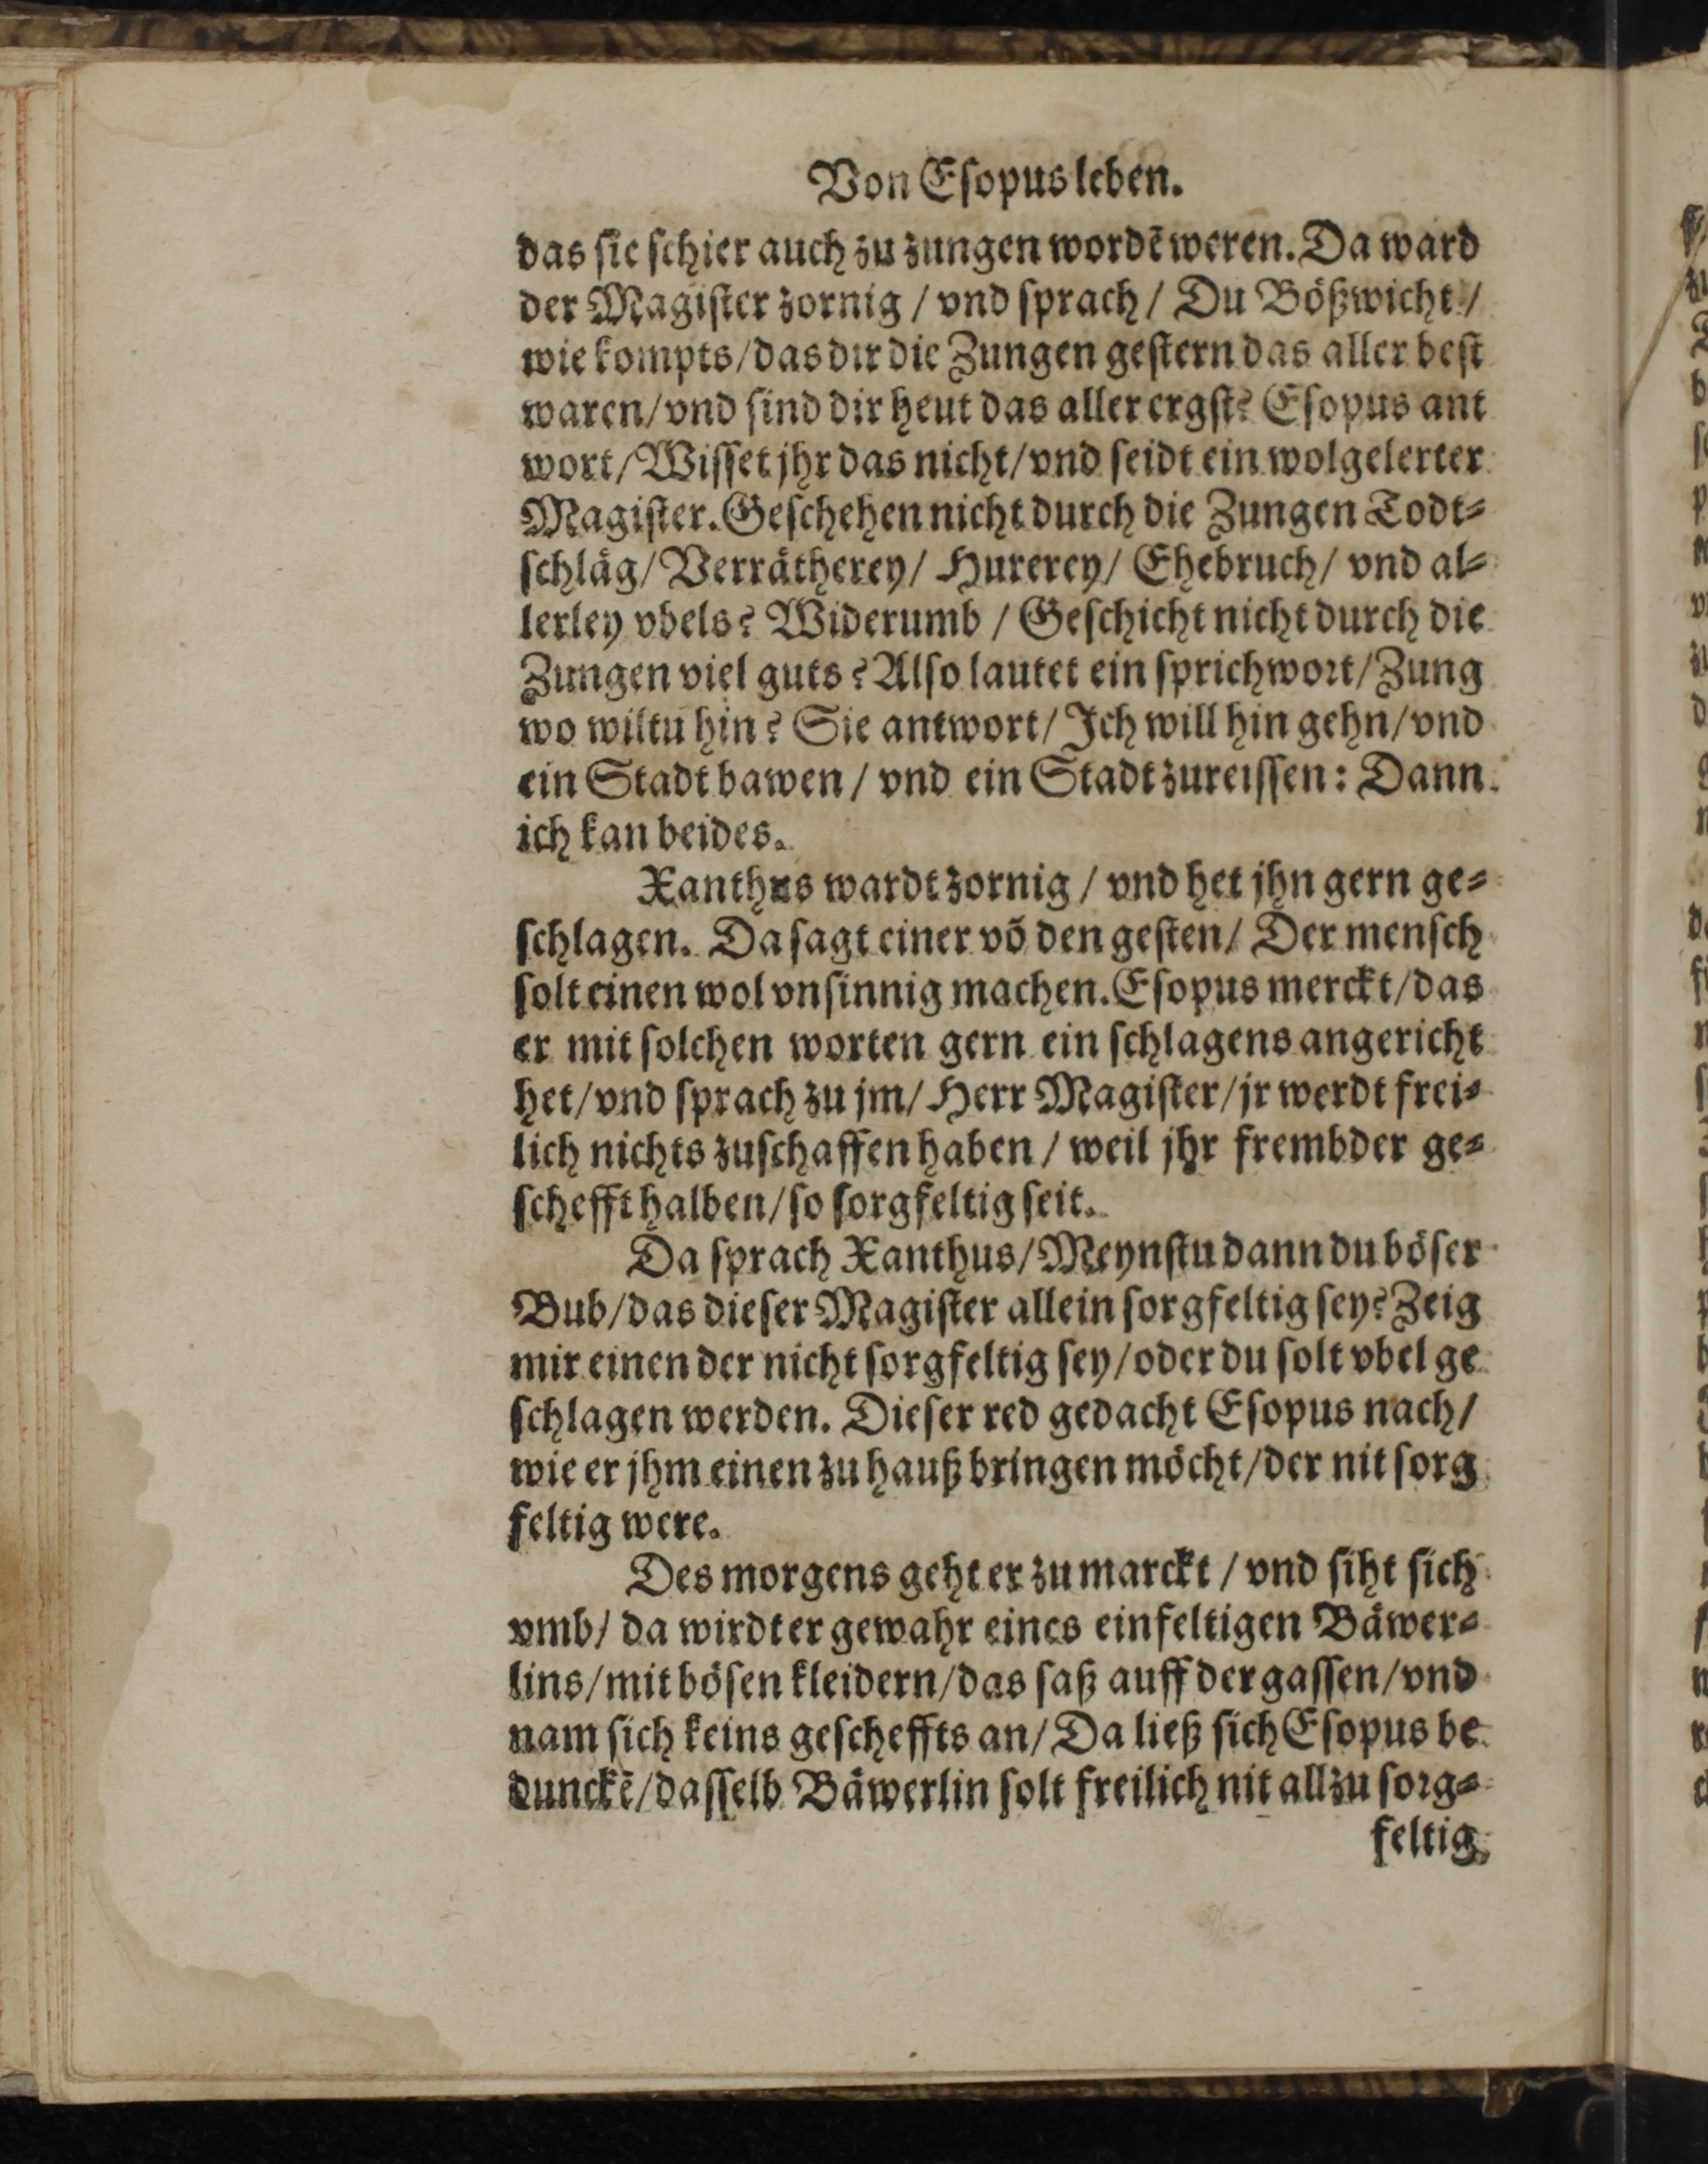 Von Esopus leben.
das sie schier auch zu zungen wordē weren. Da ward
der Magister zornig / vnd sprach / Du Bößwicht /
wie kompts / das dir die Zungen gestern das aller best
waren / vnd sind dir heut das aller ergst? Esopus ant
wort / Wisset jhr das nicht / vnd seidt ein wolgelerter
Magister. Geschehen nicht durch die Zungen Todt-
schläg / Verrätherey / Hurerey / Ehebruch / vnd al-
lerley vbels? Widerumb / Geschicht nicht durch die
Zungen viel guts? Also lautet ein sprichwort / Zung
wo wiltu hin? Sie antwort / Ich will hin gehn / vnd
ein Stadt bawen / vnd ein Stadt zureissen: Dann
ich kan beides.
Xanthus wardt zornig / vnd het jhn gern ge-
schlagen. Da sagt einer võ den gesten / Der mensch
solt einen wol vnsinnig machen. Esopus merckt / das
er mit solchen worten gern ein schlagens angericht
het / vnd sprach zu jm / Herr Magister / jr werdt frei-
lich nichts zuschaffen haben / weil jhr frembder ge-
schefft halben / so sorgfeltig seit.
Da sprach Xanthus / Meynstu dann du böser
Bub / das dieser Magister allein sorgfeltig sey? Zeig
mir einen der nicht sorgfeltig sey / oder du solt vbel ge
schlagen werden. Dieser red gedacht Esopus nach /
wie er jhm einen zu hauß bringen möcht / der nit sorg
feltig were.
Des morgens geht er zu marckt / vnd siht sich
vmb / da wirdt er gewahr eines einfeltigen Bäwer-
lins / mit bösen kleidern / das saß auff der gassen / vnd
nam sich keins gescheffts an / Da ließ sich Esopus be
dunckē / dasselb Bäwerlin solt freilich nit allzu sorg-
feltig